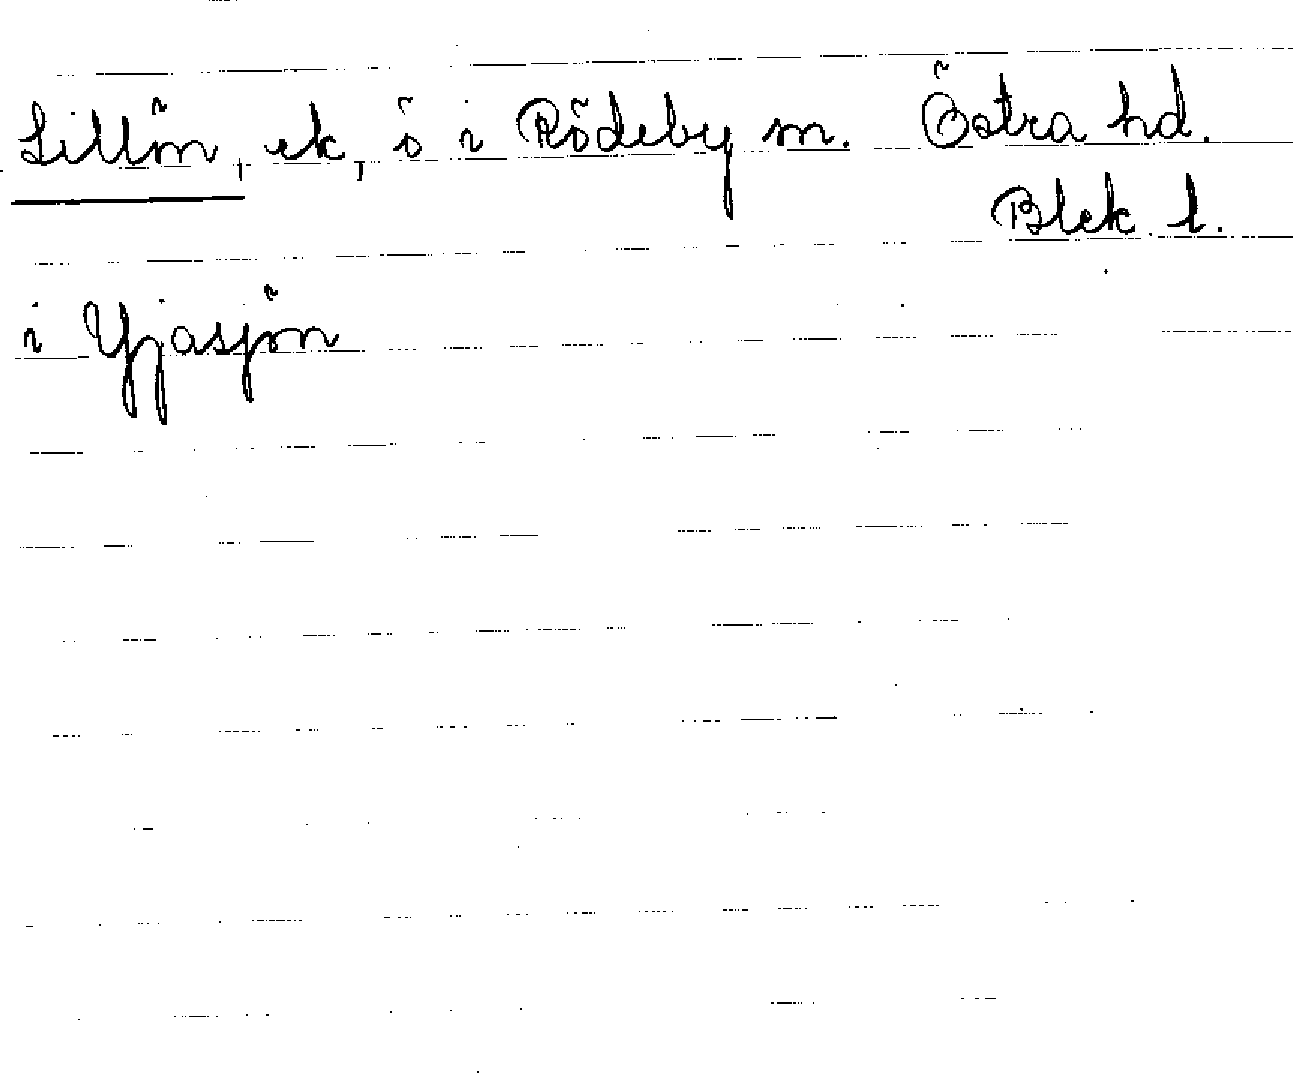 Lillön, ek, ö i Rödeby sn. Östra hd.
Blek. l.
i Yjasjön